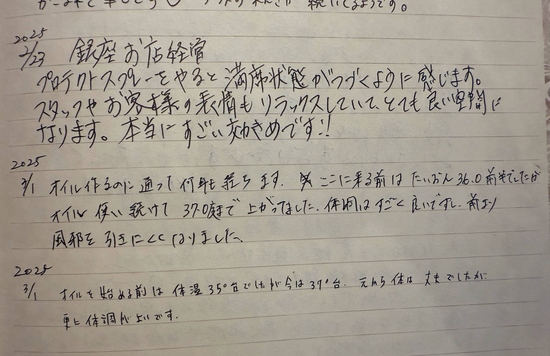 続いてるようです。
2025
2/23 銀座お店経営
プロテクトスプレーをやると満席状態がつづくように感じます。
スタッフやお客様の表情もリラックスしていて、とても良い空間に
なります。本当にすごい効きめです!!
2025
3/1 オイル作るのに通って何年も経ちます。ここに来る前はたいおん36.0前半でしたが
オイル使い続けて37.0度まで上がってました。体調はすごく良いですし、前より
風邪を引きにくくなりました。
2025
3/1 オイルを始める前は体温35°台でしたが今は37°台。元から体は丈夫でしたが
更に体調が良いです。